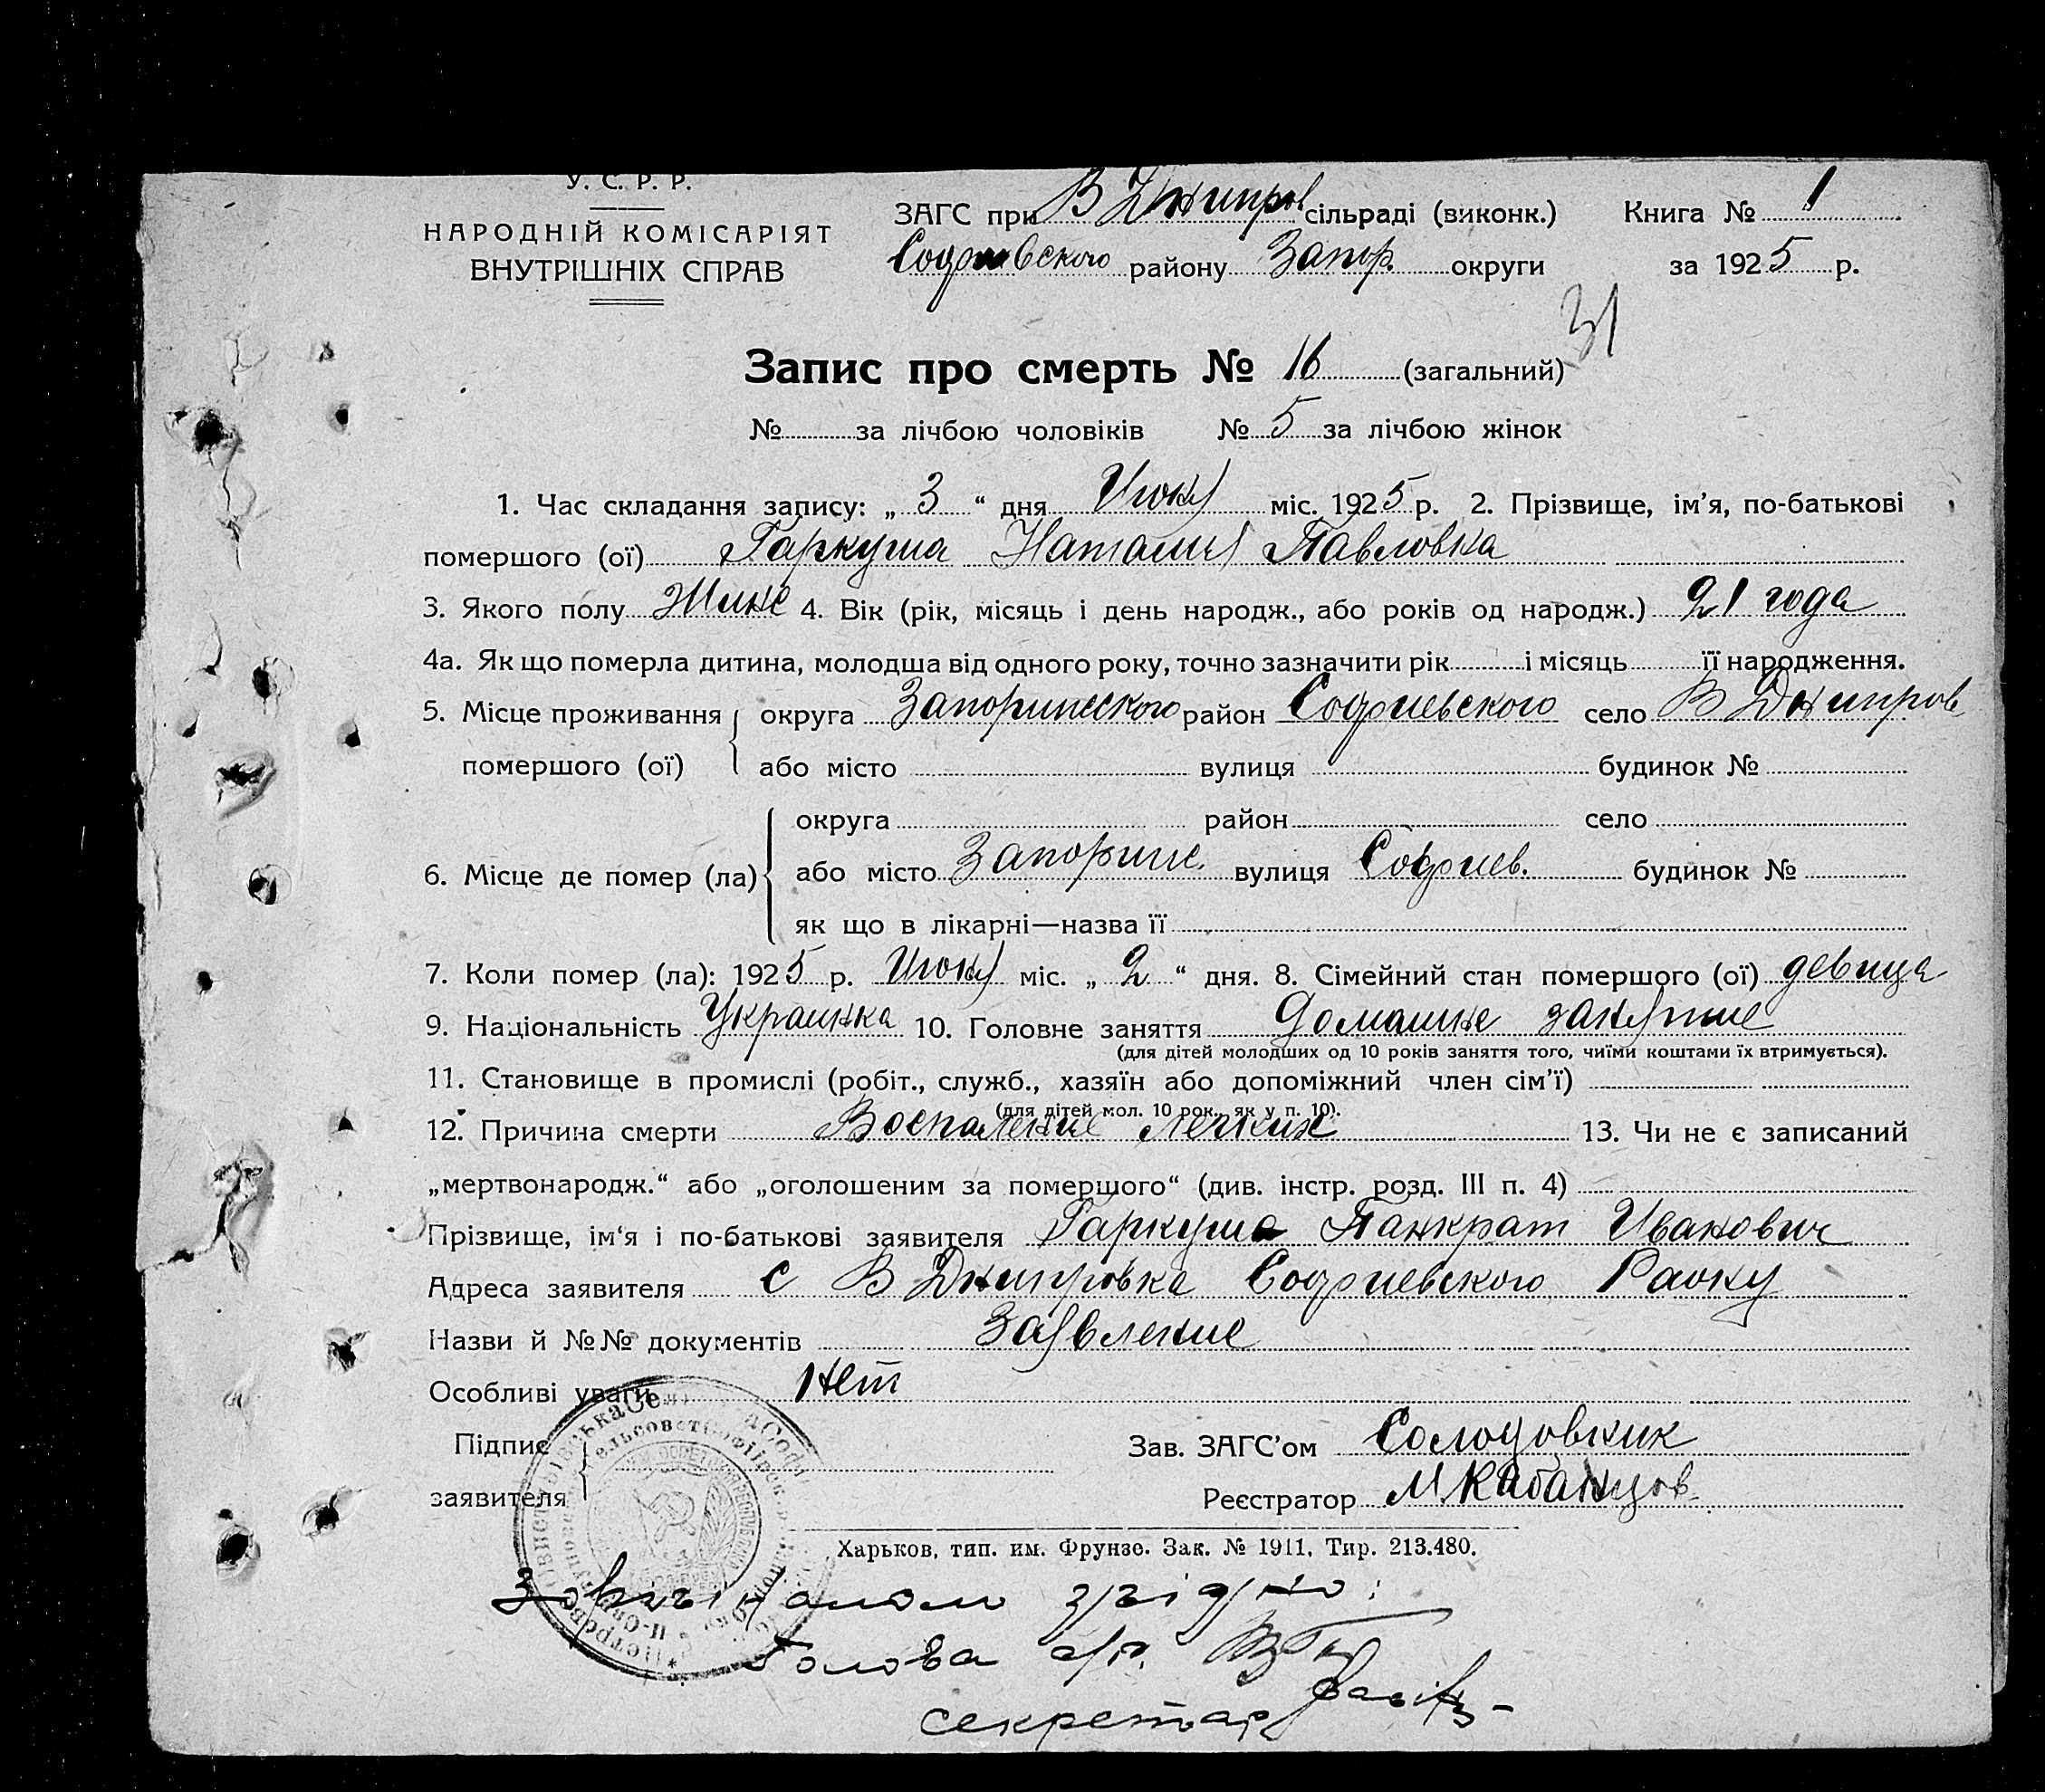 У. С. Р. Р.
НАРОДНІЙ КОМІСАРІЯТ
ВНУТРІШНІХ СПРАВ
ЗАГС при В Днипров сільраді (виконк.) Книга № 1
Софиевского району Запор. округи за 1925 р.
31
Запис про смерть № 16 (загальний)
№ за лічбою чоловіків № 5 за лічбою жінок
1. Час складання запису: „ 3 “ дня Июня міс. 1925 р. 2. Прізвище, ім’я, по-батькові
помершого (ої) Гаркуша Наталия Павловна
3. Якого полу 4. Вік (рік, місяць і день народж., або років од народж.) 21 года
4а. Як що померла дитина, молодша від одного року, точно зазначити рік і місяць її народження.
5. Місце проживання округа район Софиевского село В Днипров
помершого (ої) або місто вулиця будинок №
округа район село
6. Місце де помер (ла) або місто Запориж. вулиця Софиев. будинок №
як що в лікарні—назва її
7. Коли помер (ла): 1925 р. Июня міс. „ 2 “ дня. 8. Сімейний стан помершого (ої) девица
9. Національність Украинка 10. Головне заняття Домашне занятие
(для дітей молодших од 10 років заняття того, чиїми коштами їх втримується).
11. Становище в промислі (робіт., служб., хазяїн або допоміжний член сім’ї)
(для дітей мол. 10 рок., як у п. 10).
12. Причина смерти Воспаление легких 13. Чи не є записаний
„мертвонародж.“ або „оголошеним за помершого“ (див. інстр. розд. III п. 4)
Прізвище, ім‘я і по-батькові заявителя Гаркуша Панкрат Иванович
Адреса заявителя с В Днипровка Софиевского Раону
Назви й №№ документів Заявление
Особливі уваги нет
Підпис
заявителя
Зав. ЗАГС’ом Солодовник
Реєстратор М. Кабанцов
Харьков, тип. им. Фрунзе. Зак. № 1911, Тир. 213.480.
З оригіналом згідно:
Голова с/р.
секретар